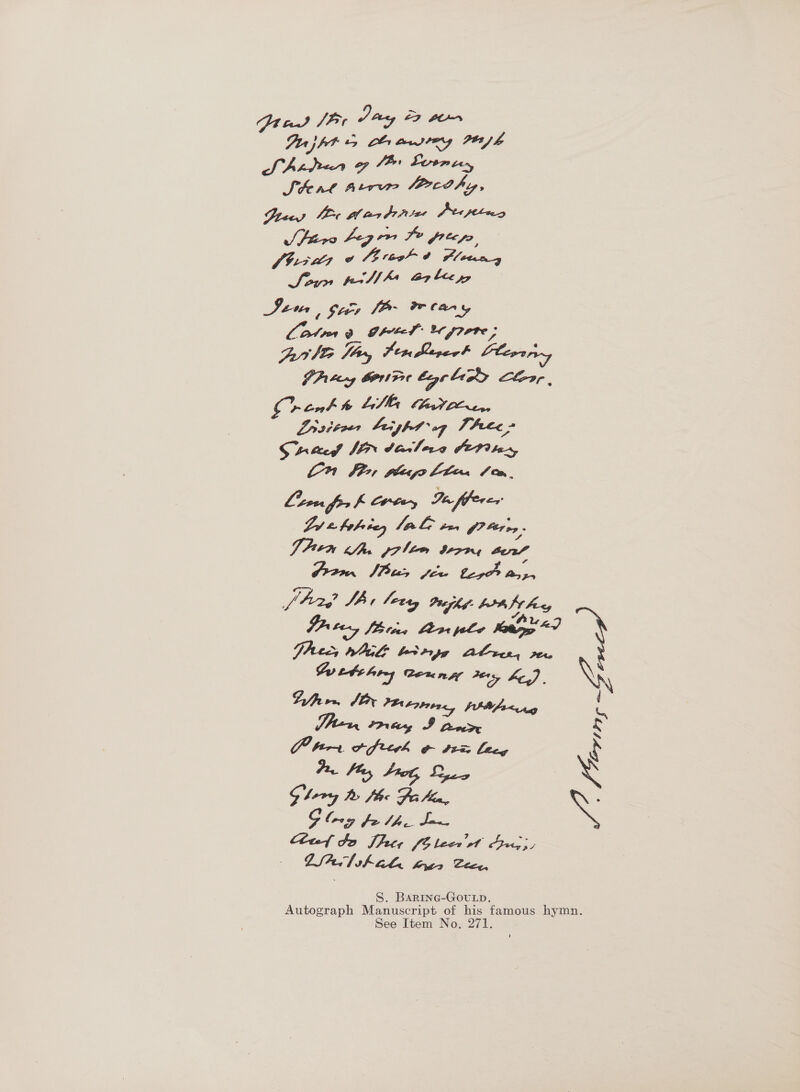 Now the Day is over
Night is drawing nigh
Shadows of the Evening
Steal across the sky.
Now the darkness
Stars begin to peep,
Birds & Beasts & Flowers
Soon will be asleep
Jesu, give the weary
Calm & sweet repose;
With Thy tenderest blessing
May our eyelids close.
Grant to little Children
Visions bright of Thee;
Guard the sailors tossing
On the deep blue sea.
Comfort every Sufferer
Watching late in pain;
Those who plan some evil
From their sin restrain
Thro' the long night watches
May their Angels spread
Their white wings above me
Watching round my bed.
When the morning wakens
Then may I arise
Pure & fresh & sinless
In Thy holy Eyes
Glory to the Father,
Glory to the Son
And to Thee Blessed Spirit
Whilst all ages run
S. Baring-Gould
S. BARING-GOULD.
Autograph Manuscript of his famous hymn.
See Item No. 271.